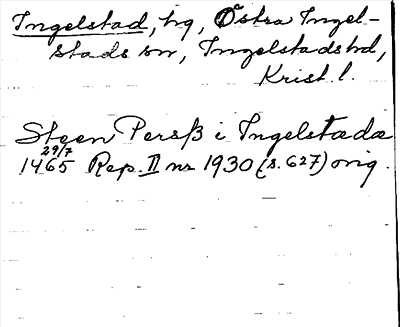 Ingelstad, hg, Östra Ingel-
stads sn, Ingelstads hd,
Krist. l.
Steen Persß i Ingelstæda
29/7
1465 Rep. II nr 1930 (s. 627) orig.